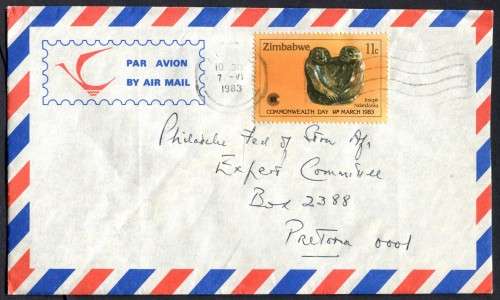 PAR AVION
BY AIR MAIL
10 30
7 - VI
1983
Zimbabwe 11c
Joseph
Ndandarika
COMMONWEALTH DAY 14th MARCH 1983
Philatelic Fed of Stn Afr
Expert Committee
Box 2388
Pretoria 0001